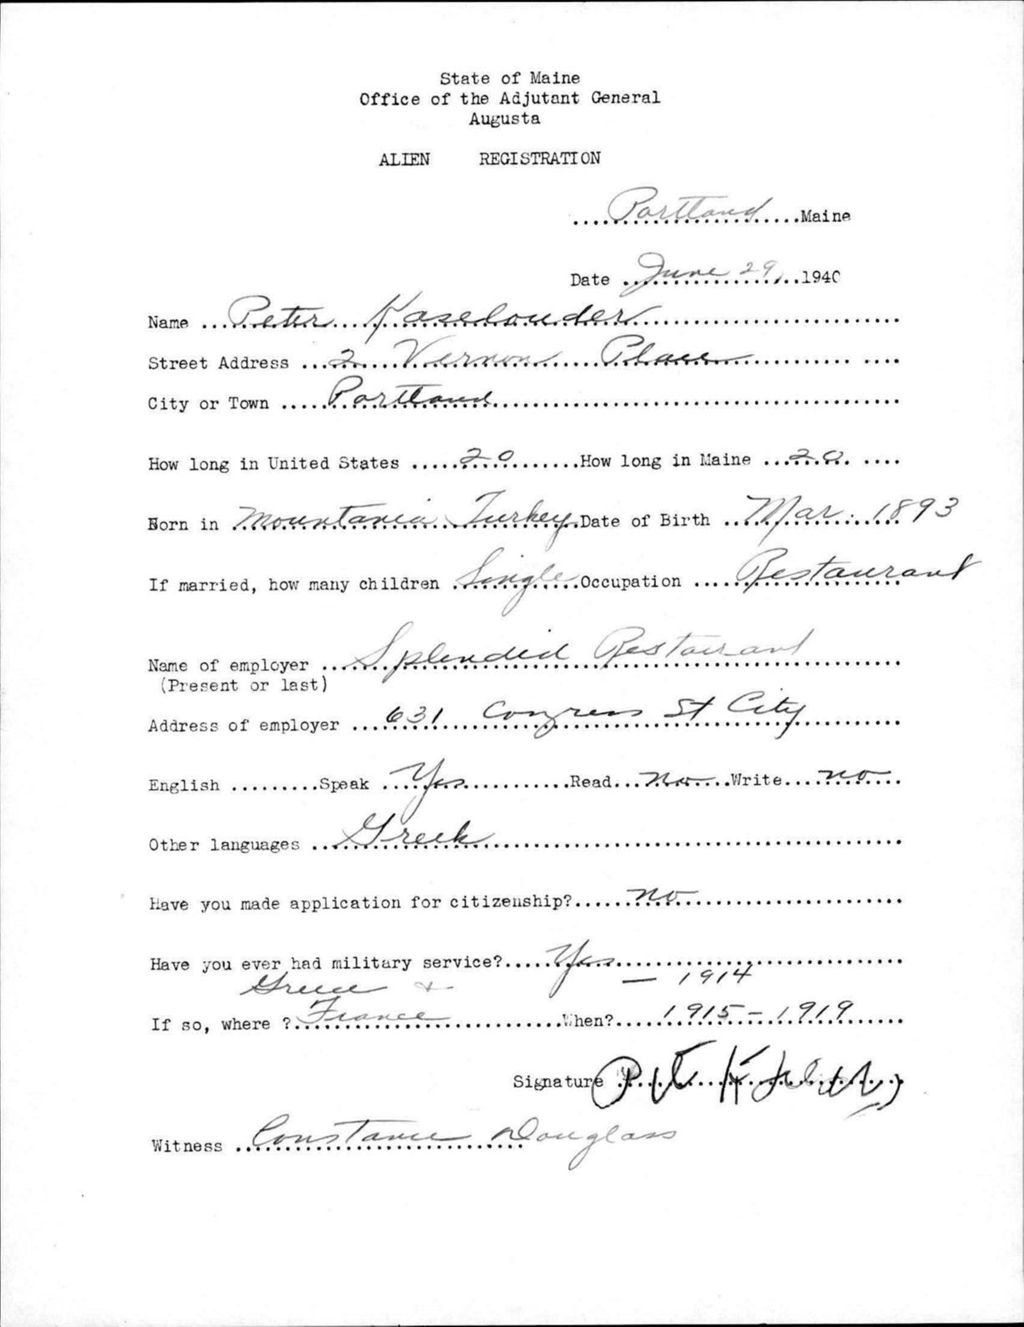 State of Maine
Office of the Adjutant General
Augusta
ALIEN REGISTRATION
....Portland....Maine
Date ..June 29,..1940
Name ...Peter Kaselouder...
Street Address ...2 Vernon Place...
City or Town ....Portland...
How long in United States ....20.......How long in Maine ...20. ....
Born in .Mountania Turkey.Date of Birth ..Mar. 1893
If married, how many children .Single..Occupation ....Restaurant
Name of employer ..Splendid Restaurant...
(Present or last)
Address of employer ...631 Congress St City...
English .........Speak ...Yes..........Read...no...Write....no...
Other languages ..Greek...
Have you made application for citizenship?......no...
Have you ever had military service?.....Yes...
Greece & — 1914
If so, where ?.France...When?....1915 - 1919.....
Signature
Witness ..Constance Douglass